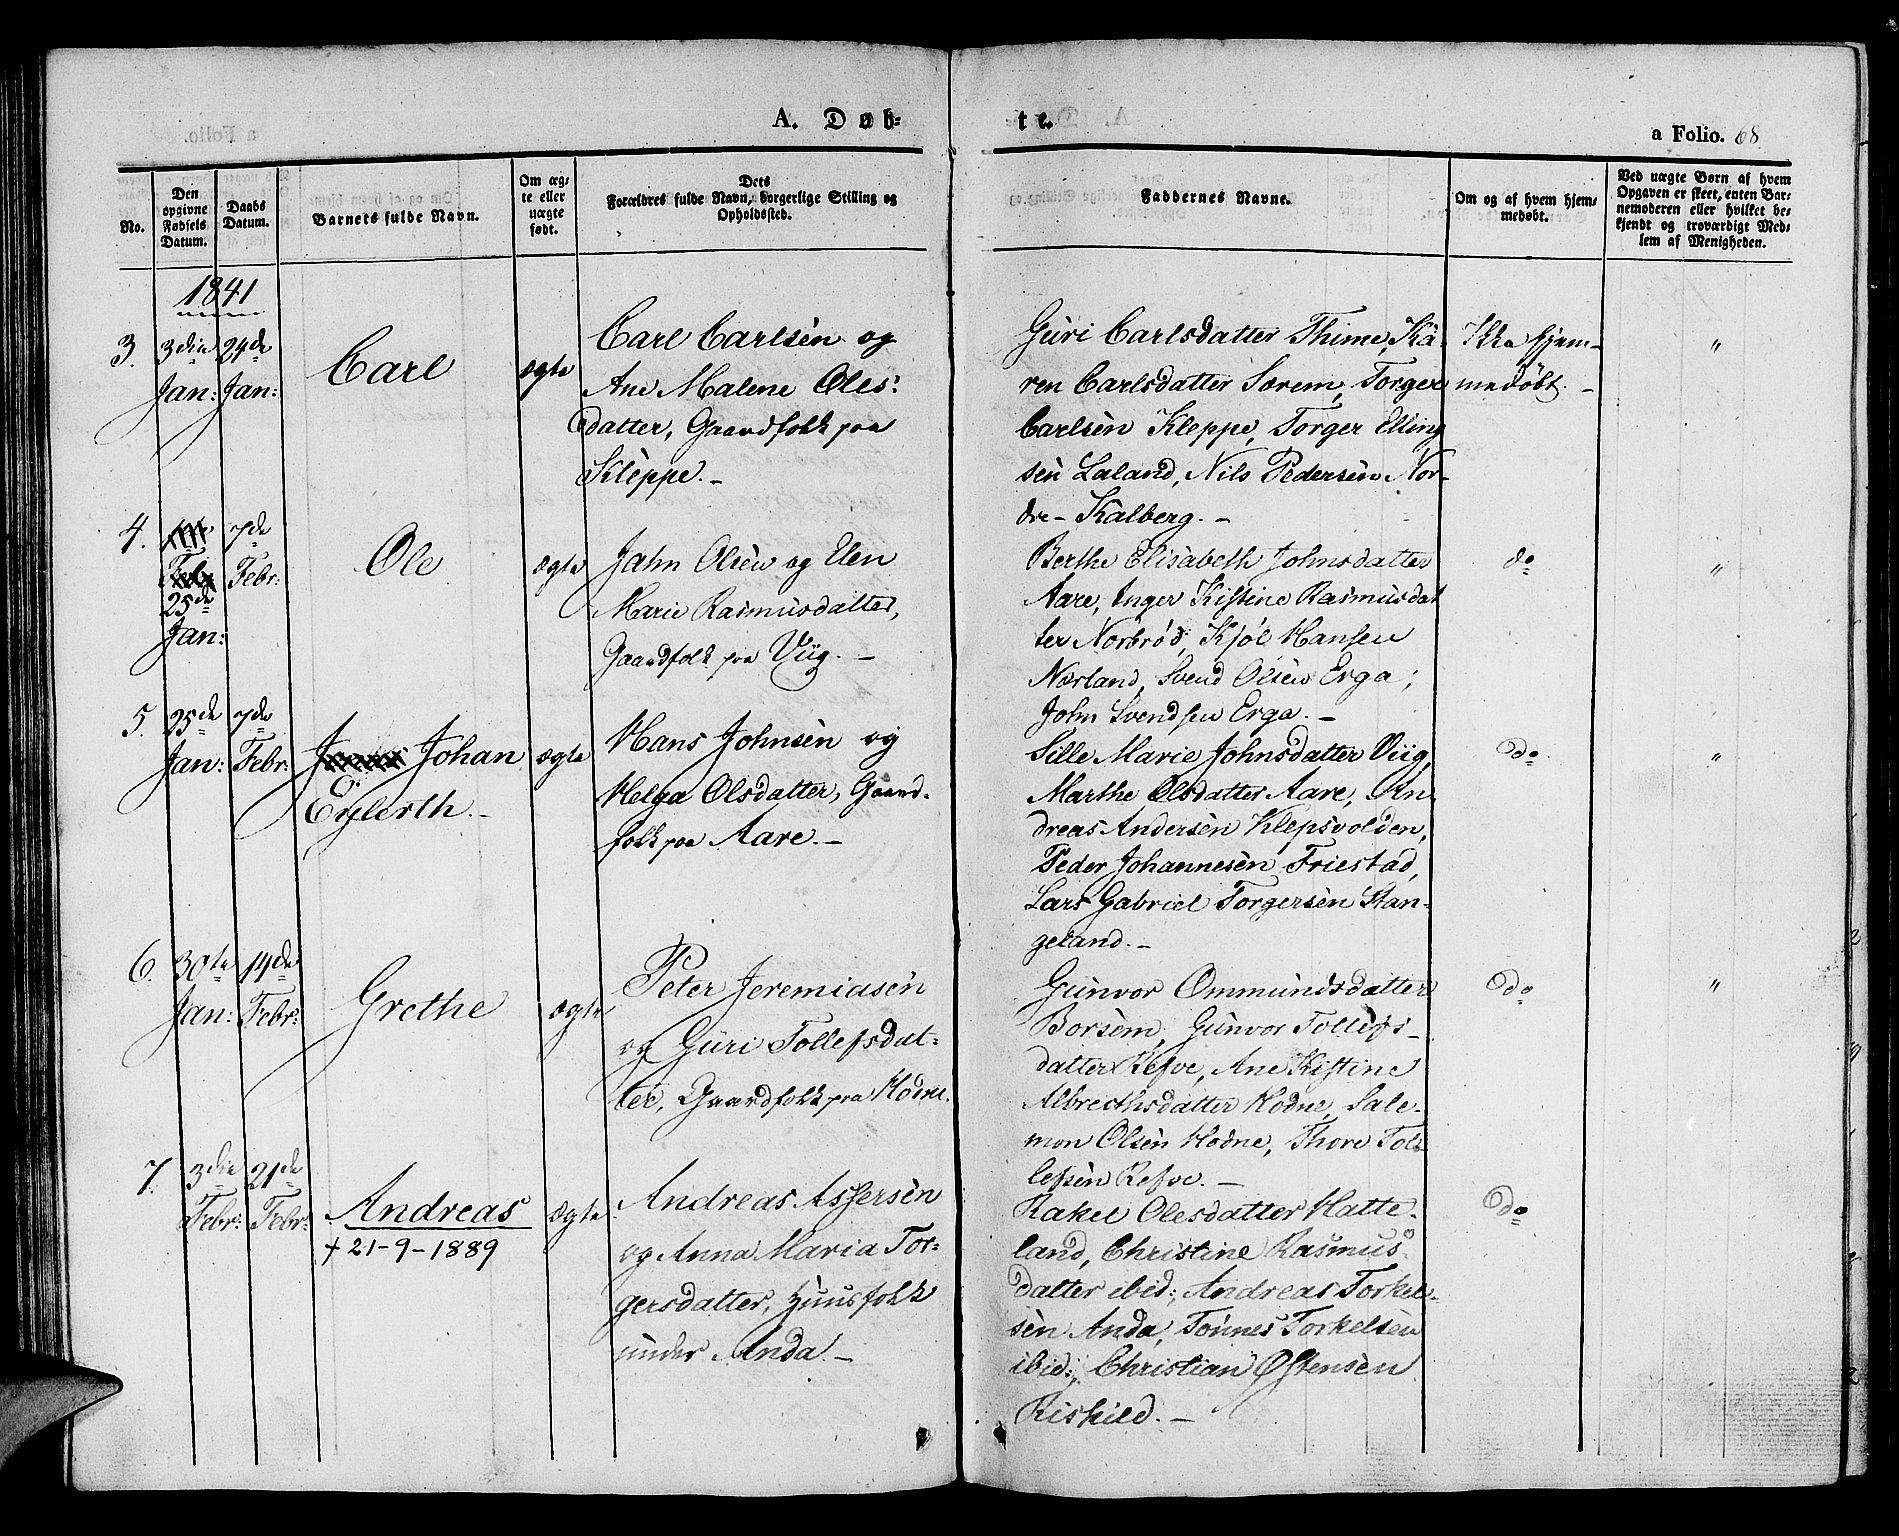 A. Døb-
te.
a Folio. 68
No.
Den opgivne Fødsels Datum.
Daabs Datum.
Barnets fulde Navn.
Om ægte eller uægte født.
Dets Forældres fulde Navn, borgerlige Stilling og Opholdssted.
Faddernes Navne.
Om og af hvem hjemmedøbt.
Ved uægte Børn af hvem Opgaven er skeet, enten Barnemoderen eller hvilket bekjendt og troværdigt Medlem af Menigheden.
1841
3.
3die
Jan:
24de
Jan:
Carl
ægte
Carl Carlsen og
Ane Malene Oles-
datter, Gaardfolk paa
Kleppe. –
Guri Carlsdatter Thime, Ka-
ren Carlsdatter Sørem, Torger
Carlsen Kleppe, Torger Elling
sen Laland, Nils Pedersen Nor-
dre – Kalberg. –
Ikke hjem-
medøbt. –
"
4.
25de
Jan:
7de
Febr:
Ole
ægte
John Olsen og Elen
Marie Rasmusdatter,
Gaardfolk paa Viig. –
Berthe Elisabeth Johnsdatter
Aare, Inger Kistine Rasmusdat
ter Norbrød, Kjøl Hansen
Nærland, Svend Olsen Erga;
John Svendsen Erga. –
do
"
5.
25de
Jan:
7de
Febr:
Johan
Eylerth. –
ægte
Hans Johnsen og
Helga Olsdatter, Gaard-
folk paa Aare. –
Sille Marie Johnsdatter Viig,
Marthe Olsdatter Aare, An-
dreas Andersen Klepsvolden,
Peder Johannesen Friestad,
Lars Gabriel Torgersen Stan-
geland. –
do
"
6.
30te
Jan:
14de
Febr:
Grethe
ægte
Peter Jeremiasen
og Guri Tollefsdat-
ter, Gaardfolk paa Hodne.
Gunvor Ommundsdatter
Borsem, Gunvor Tollefs-
datter Refve, Ane Kistine
Albrecthsdatter Hodne, Sale-
mon Olsen Hodne, Thore Tol-
lefsen Refve. –
do
"
7.
3die
Febr:
21de
Febr:
Andreas
+ 21-9-1889
ægte
Andreas Assersen
og Anna Maria Tor-
gersdatter, Huusfolk
under Anda. –
Rakel Olesdatter Hatte-
land, Christine Rasmus-
datter ibid:, Andreas Torkel-
sen Anda, Tønnes Torkelsen
ibid:, Christian Østensen
Riskild. –
do